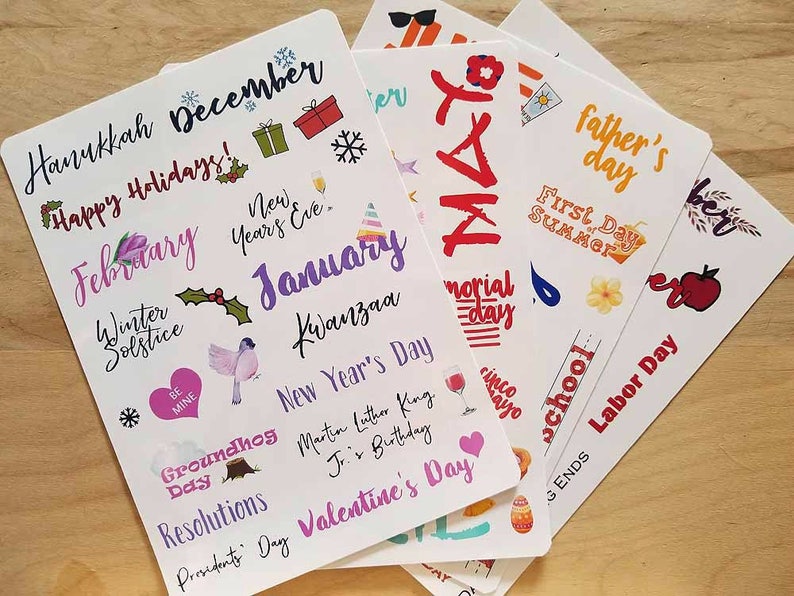 Hanukkah
December
Happy Holidays!
New
Year's Eve
February
January
Winter
Solstice
Kwanzaa
BE
MINE
New Year's Day
Groundhog
Day
Martin Luther King
Jr.'s Birthday
Resolutions
Valentine's Day
Presidents' Day
MAY
morial
day
cinco
mayo
father's
day
First Day
of
Summer
School
ber
Labor Day
G ENDS